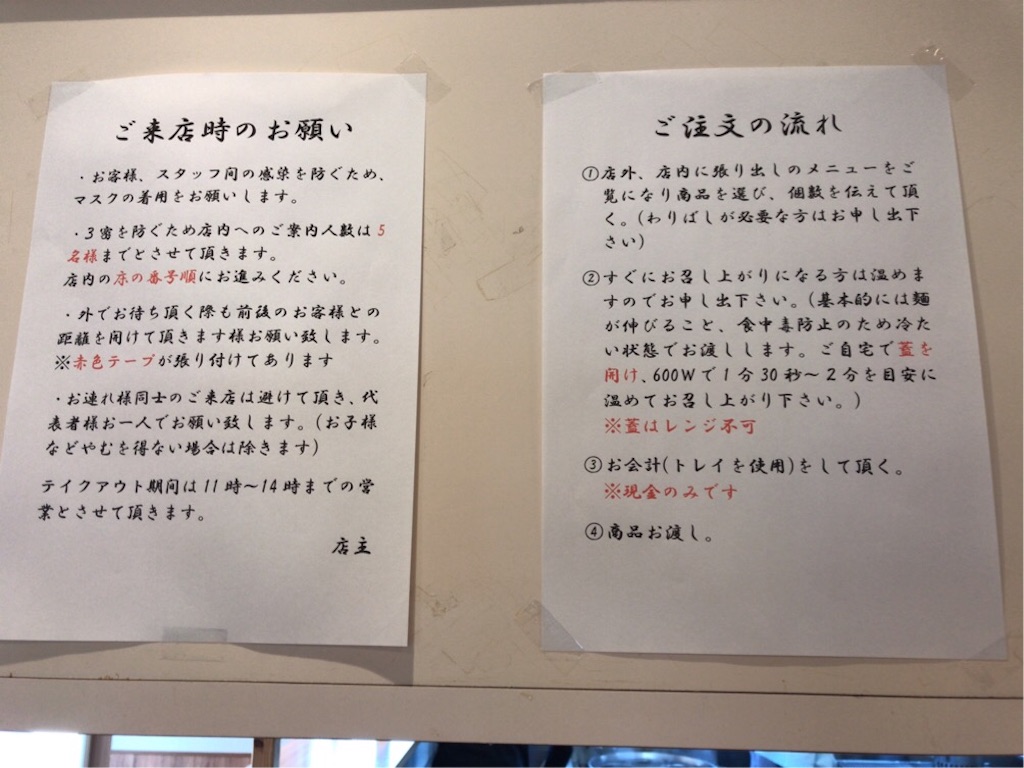 ご来店時のお願い
・お客様、スタッフ間の感染を防ぐため、
マスクの着用をお願いします。
・3密を防ぐため店内へのご案内人数は5
名様までとさせて頂きます。
店内の床の番号順にお進みください。
・外でお待ち頂く際も前後のお客様との
距離を開けて頂きます様お願い致します。
※赤色テープが張り付けてあります
・お連れ様同士のご来店は避けて頂き、代
表者様お一人でお願い致します。(お子様
などやむを得ない場合は除きます)
テイクアウト期間は11時〜14時までの営
業とさせて頂きます。
店主
ご注文の流れ
①店外、店内に張り出しのメニューをご
覧になり商品を選び、個数を伝えて頂
く。(わりばしが必要な方はお申し出下
さい)
②すぐにお召し上がりになる方は温めま
すのでお申し出下さい。(基本的には麺
が伸びること、食中毒防止のため冷た
い状態でお渡しします。ご自宅で蓋を
開け、600Wで1分30秒〜2分を目安に
温めてお召し上がり下さい。)
※蓋はレンジ不可
③お会計(トレイを使用)をして頂く。
※現金のみです
④商品お渡し。